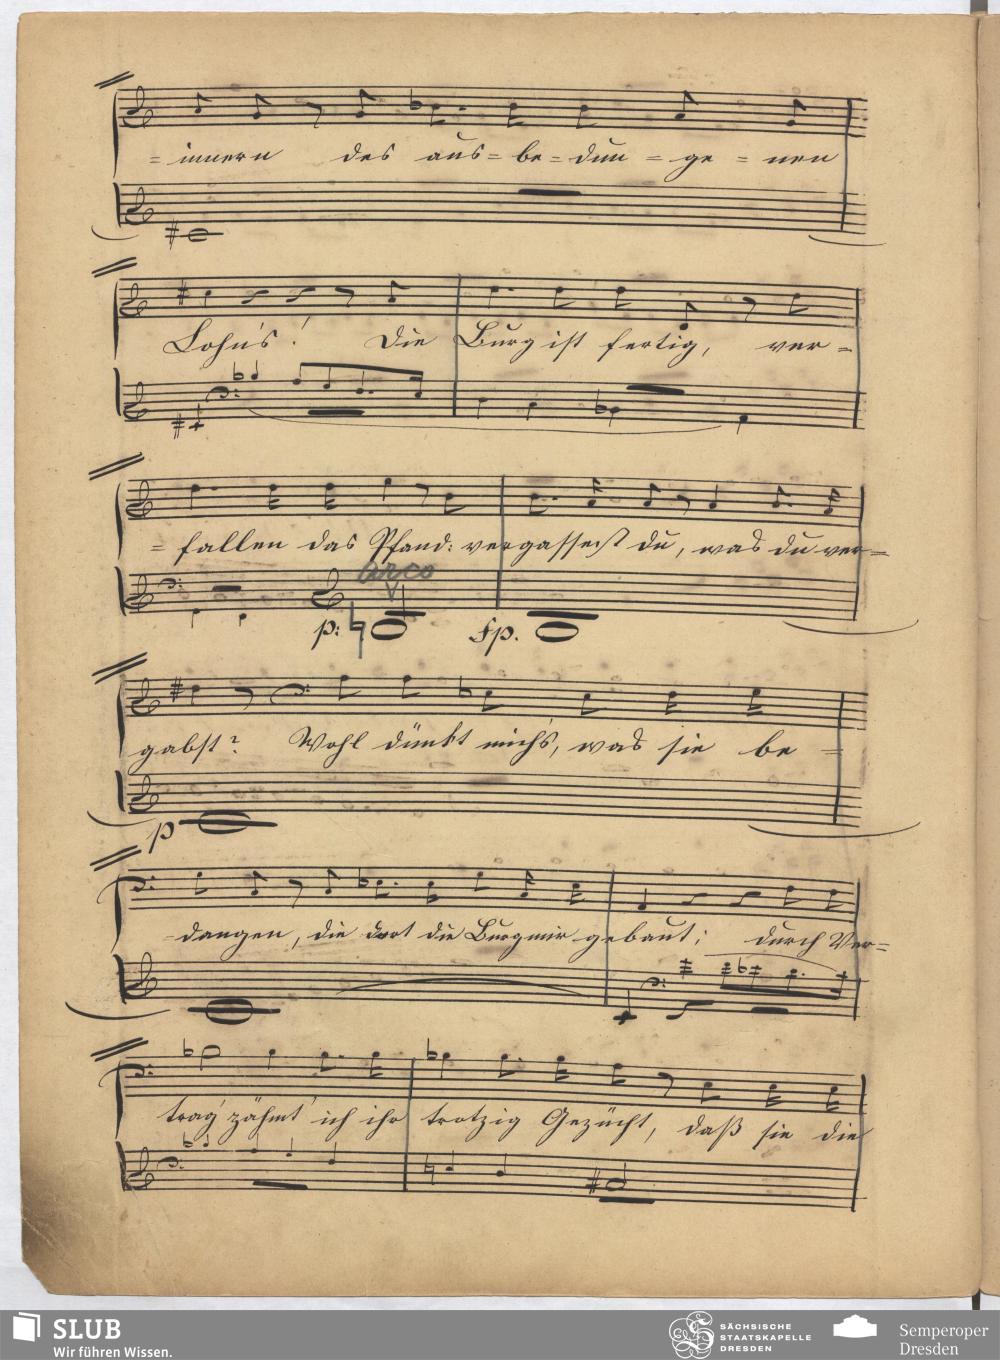 = innern des aus = be = dun = ge = nen
Lohn's! Die Burg ist fertig, ver =
= fallen das Pfand: vergassest du, was du ver =
arco
p: fp.
gabst? Wohl dünkt mich's, was sie be =
p
- dangen, die dort die Burg mir gebaut; durch Ver =
trag zähmt' ich ihr trotzig Gezücht, daß sie die
SLUB
Wir führen Wissen.
SÄCHSISCHE
STAATSKAPELLE
DRESDEN
Semperoper
Dresden